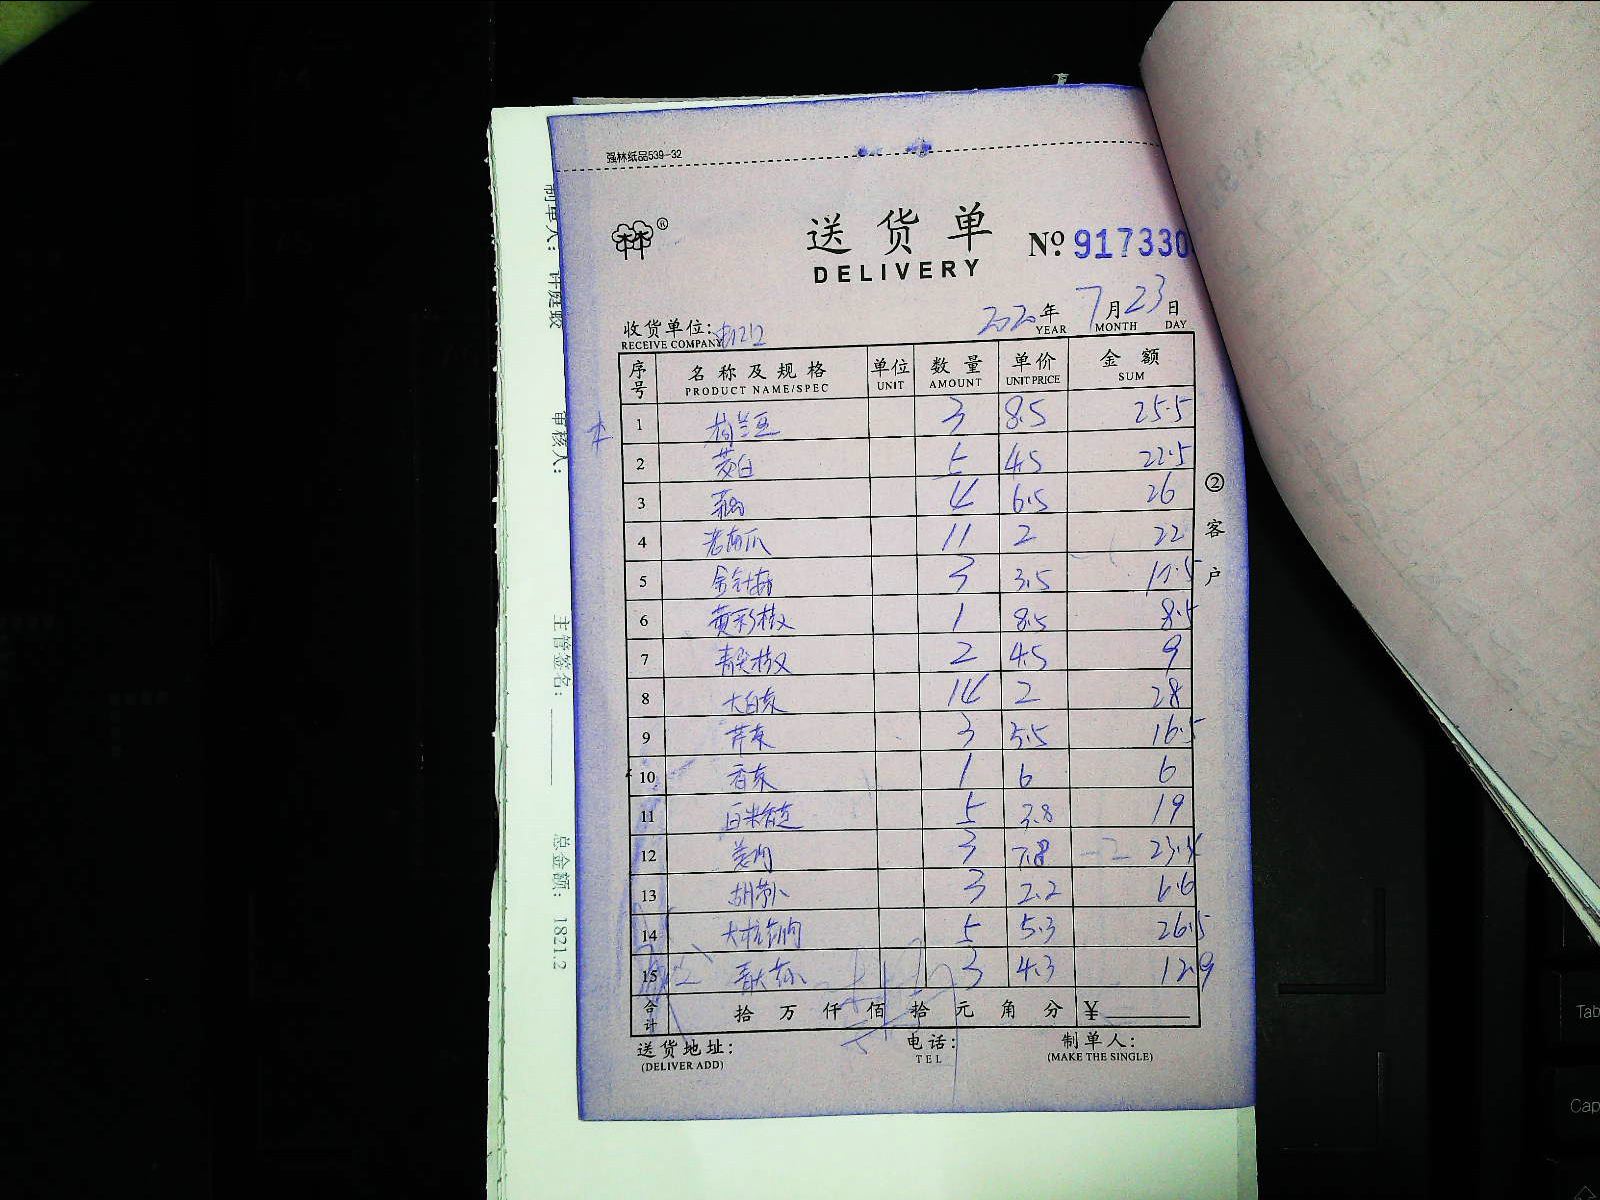 强林纸品539-32
林®
送货单
DELIVERY
№ 917330
2020年 7月 23日
YEAR MONTH DAY
收货单位:
RECEIVE COMPANY
序号 名称及规格 单位 数量 单价 金额
PRODUCT NAME/SPEC UNIT AMOUNT UNIT PRICE SUM
1 荷兰豆 3 8.5 25.5
2 茭白 5 4.5 22.5
3 4 6.5 26
4 老南瓜 11 2 22
5 金针菇 3 3.5
6 黄彩椒 1 8.5 8.5
7 青尖椒 2 4.5 9
8 大白菜 14 2 28
9 芹菜 3 5.5 16.5
10 香菜 1 6 6
11 5 3.8 19
12 姜肉 3 7.8 23.4
13 胡萝卜 3 2.2 6.6
14 5 5.3 26.5
15 3 4.3 12.9
合计 拾 万 仟 佰 拾 元 角 分 ¥
送货地址: 电话: 制单人:
(DELIVER ADD) TEL (MAKE THE SINGLE)
②客户
制单人:
审核人:
主管签名:
总金额: 1821.2
Tab
Cap